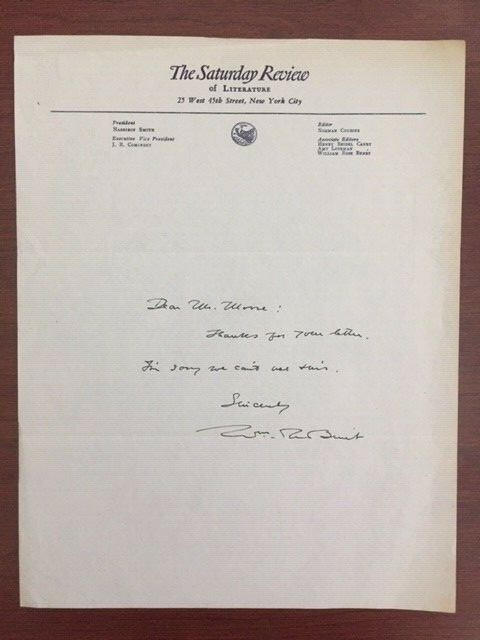 The Saturday Review
of LITERATURE
25 West 45th Street, New York City
President
HARRISON SMITH
Executive Vice President
J. R. COMINSKY
Editor
NORMAN COUSINS
Associate Editors
HENRY SEIDEL CANBY
AMY LOVEMAN
WILLIAM ROSE BENÉT
Dear Mr. Moore:
Thanks for your letter.
I'm sorry we can't use this.
Sincerely
Wm. Rose Benét